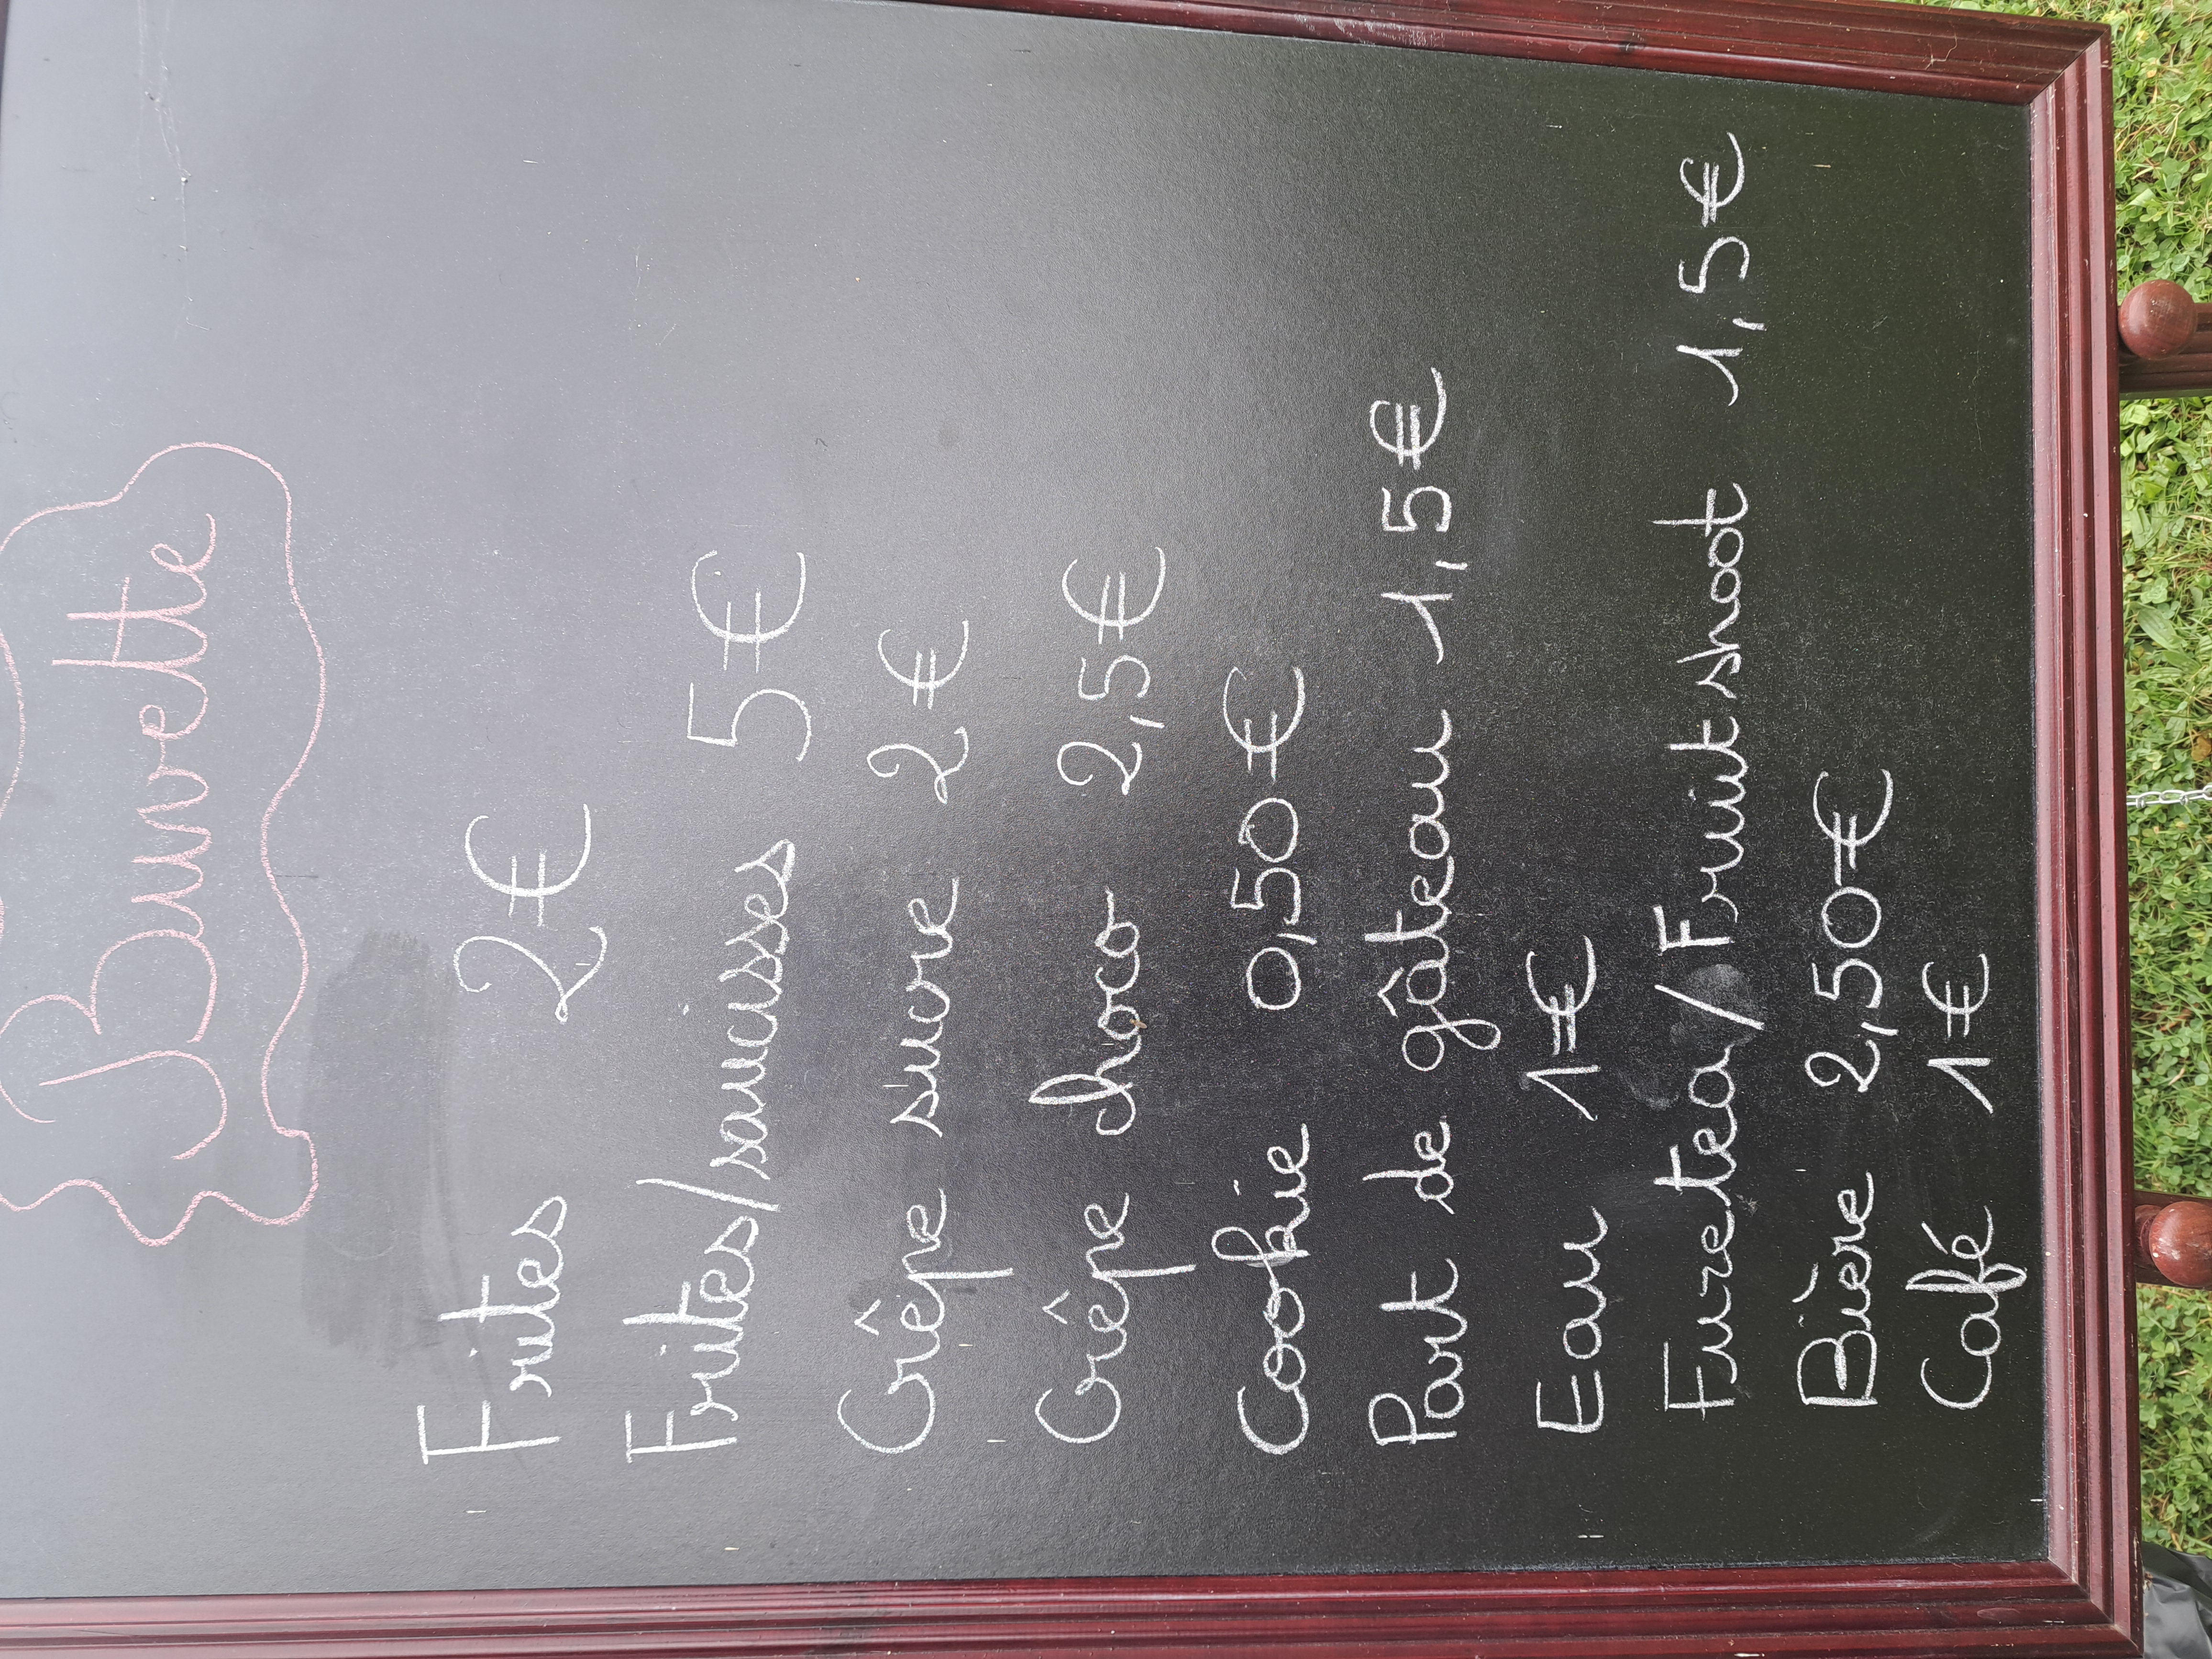 Buvette
Frites 2€
Frites/saucisses 5€
Crêpe sucre 2€
Crêpe choco 2,5€
Cookie 0,50€
Part de gâteau 1,5€
Eau 1€
Fuzetea/Fruitshoot 1,5€
Bière 2,50€
Café 1€